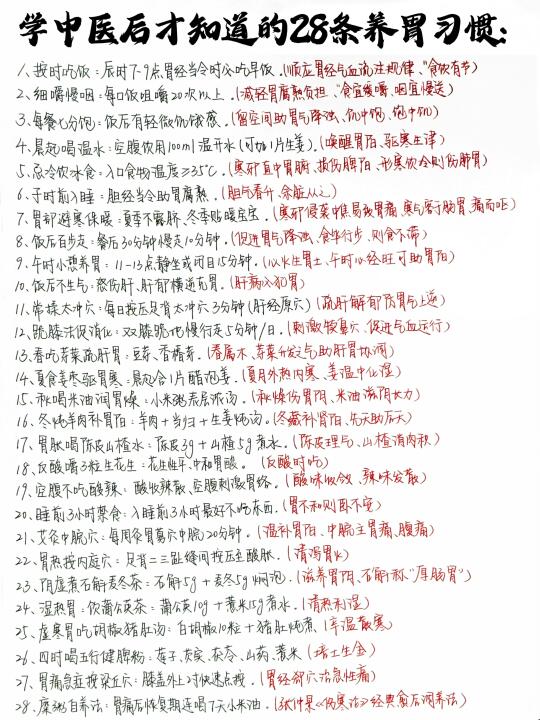 学中医后才知道的28条养胃习惯:
1、按时吃饭:辰时7-9点胃经当令时必吃早饭.(顺应胃经气血流注规律、"食饮有节")
2、细嚼慢咽:每口饭咀嚼20次以上.(减轻胃腐熟负担、"食宜缓嚼、咽宜慢送")
3、每餐七分饱:饭后有轻微饥饿感.(留空间助胃气降浊、饥中饱、饱中饥)
4、晨起喝温水:空腹饮用100ml温开水(可加1片生姜).(唤醒胃阳、驱寒生津)
5、忌冷饮冰食:入口食物温度≥35℃.(寒邪直中胃腑、损伤脾阳、形寒饮冷则伤肺胃)
6、子时前入睡:胆经当令助胃腐熟.(胆气春升、余脏从之)
7、胃部避寒保暖:夏季不露脐、冬季贴暖宝宝.(寒邪侵袭中焦易致胃痛、寒气客于肠胃、痛而呕)
8、饭后百步走:餐后30分钟慢走10分钟.(促进胃气降浊、食毕行步、则食不滞)
9、午时小憩养胃:11-13点静坐或闭目15分钟.(心火生胃土、午时心经旺可助胃阳)
10、饭后不生气:怒伤肝、肝郁横逆克胃.(肝病人犯胃)
11、常揉太冲穴:每日按压足背太冲穴3分钟(肝经原穴)(疏肝解郁防胃气上逆)
12、跪膝法促消化:双膝跪地慢行走5分钟/日.(刺激犊鼻穴、促进气血运行)
13、春吃芽菜疏肝胃:豆芽、香椿芽.(春属木、芽菜升发之气助肝胃协调)
14、夏食姜枣驱胃寒:晨起含1片醋泡姜.(夏月外热内寒、姜温中化湿)
15、秋喝米油润胃燥:小米粥表层浓汤.(秋燥伤胃阴、米油滋阴长力)
16、冬炖羊肉补胃阳:羊肉+当归+生姜炖汤.(冬藏补肾阳、先天助后天)
17、胃胀喝陈皮山楂水:陈皮3g+山楂5g煮水.(陈皮理气、山楂消肉积)
18、反酸嚼3粒生花生:花生性平、中和胃酸. (反酸时吃)
19、空腹不吃酸辣:酸收辣散、空腹刺激胃络.(酸味收敛、辣味发散)
20、睡前3小时禁食:入睡前3小时最好不吃东西.(胃不和则卧不安)
21、艾灸中脘穴:每周灸胃募穴中脘20分钟.(温补胃阳、中脘主胃痛、腹痛)
22、胃热按内庭穴:足背二三趾缝间按压至酸胀.(清泻胃火)
23、阴虚煮石斛麦冬茶:石斛5g+麦冬5g焖泡.(滋养胃阴、石斛称"厚肠胃")
24、湿热胃:饮蒲公英茶:蒲公英10g+薏米15g煮水.(清热利湿)
25、虚寒胃吃胡椒猪肚汤:白胡椒10粒+猪肚炖煮(辛温散寒)
26、四时喝五行健脾粉:莲子、芡实、茯苓、山药、薏米(培土生金)
27、胃痛急症按梁丘穴:膝盖外上2寸快速点按.(胃经郄穴治急性痛)
28、糜粥自养法:胃病后恢复期连喝7天小米油.(张仲景《伤寒论》经典愈后调养法)